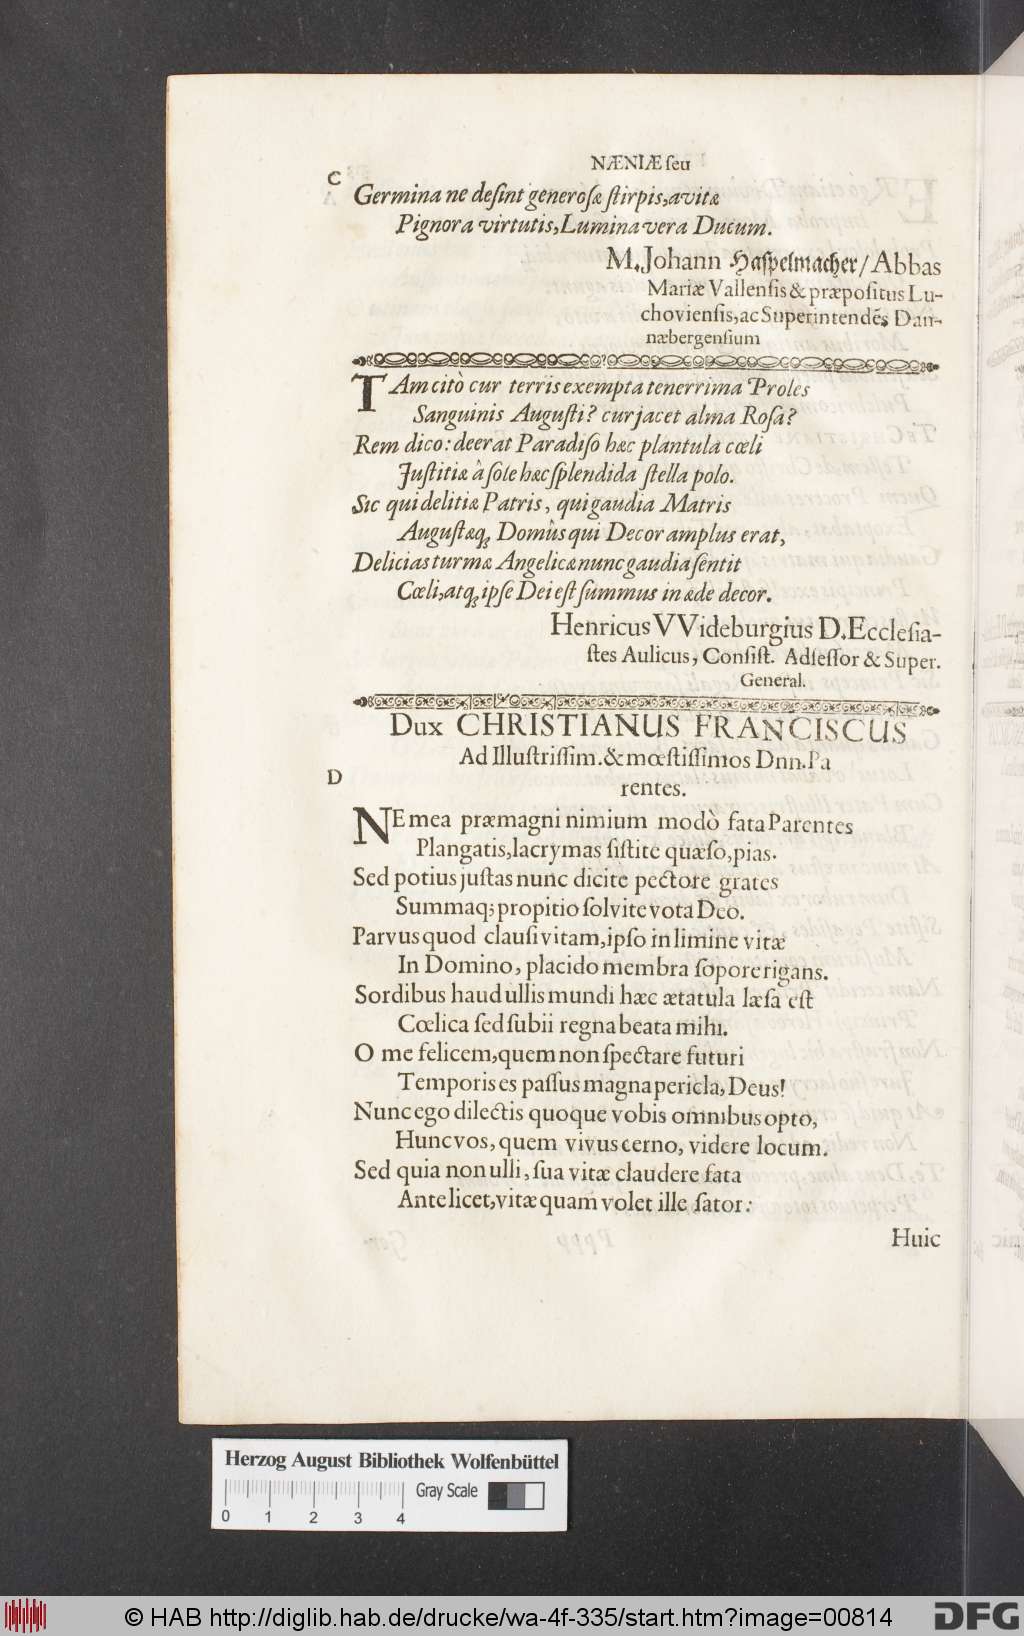 NÆNIÆ ſeu
C
Germina ne deſint generoſæ ſtirpis, avitæ
Pignora virtutis, Lumina vera Ducum.
M. Johann Haſpelmacher / Abbas
Mariæ Vallenſis & præpoſitus Lu-
chovienſis, ac Superintendẽs Dan-
næbergenſium
TAm citò cur terris exempta tenerrima Proles
Sanguinis Auguſti? cur jacet alma Roſa?
Rem dico: deerat Paradiſo hæc plantula cœli
Juſtitiæ â ſole hæc ſplendida ſtella polo.
Sic qui delitiæ Patris, qui gaudia Matris
Auguſtæq; Domûs qui Decor amplus erat,
Delicias turmæ Angelicæ nunc gaudia ſentit
Cœli, atq; ipſe Dei eſt ſummus in æde decor.
Henricus VVideburgius D. Eccleſia-
ſtes Aulicus, Conſiſt. Adſeſſor & Super.
General.
Dux CHRISTIANUS FRANCISCUS
Ad Illuſtriſſim. & mœſtiſſimos Dnn. Pa
rentes.
D
NE mea præmagni nimium modò fata Parentes
Plangatis, lacrymas ſiſtite quæſo, pias.
Sed potius juſtas nunc dicite pectore grates
Summaq; propitio ſolvite vota Deo.
Parvus quod clauſi vitam, ipſo in limine vitæ
In Domino, placido membra ſopore rigans.
Sordibus haud ullis mundi hæc ætatula læſa eſt
Cœlica ſed ſubii regna beata mihi.
O me felicem, quem non ſpectare futuri
Temporis es paſſus magna pericla, Deus!
Nunc ego dilectis quoque vobis omnibus opto,
Hunc vos, quem vivus cerno, videre locum.
Sed quia non ulli, ſua vitæ claudere fata
Ante licet, vitæ quam volet ille ſator:
Huic
Herzog August Bibliothek Wolfenbüttel
Gray Scale
0 1 2 3 4
© HAB http://diglib.hab.de/drucke/wa-4f-335/start.htm?image=00814
DFG